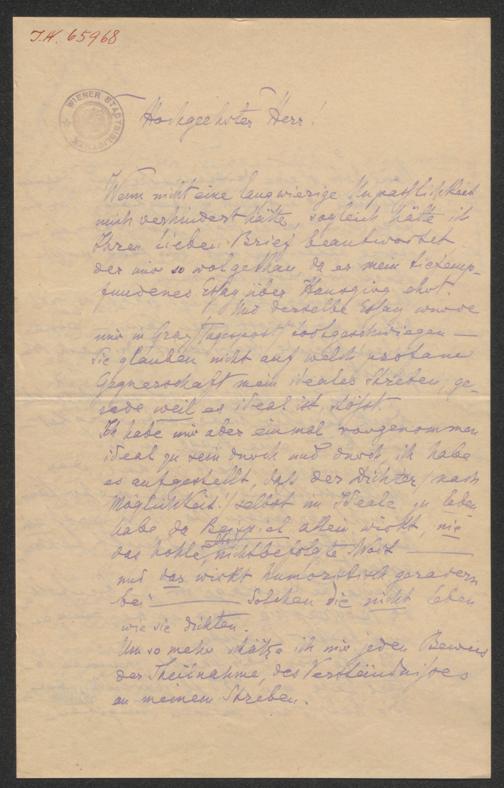 I.N. 65968
WIENER STADTBIBLIOTHEK
Hochgeehrter Herr!
Wenn nicht eine langwierige Unpässlichkeit
mich verhindert hätte, sogleich hätte ich
Ihren lieben Brief beantwortet
der mir so wolgethan, da er mein tiefemp-
fundenes Essay über Hausgiva ehrt.
Und derselbe Essay wurde
mir in Graz Tagespost todtgeschwiegen —
Sie glauben nicht auf welch profane
Gegnerschaft mein ideales Streben, ge-
rade weil es ideal ist, stößt.
Ich habe mir aber einmal vorgenommen
ideal zu sein durch und durch, ich habe
es aufgestellt, daß der Dichter (nach
Möglichkeit!) selbst im Ideale zu leben
habe da Beispiel allein wirkt, nie
das hohle, nichtbefolgte Wort —
und das wirkt humoristisch geradezu
bei — Solchen die nicht leben
wie sie dichten.
Um so mehr schätze ich mir jeden Beweis
der Theilnahme, des Verständnisses
an meinem Streben.